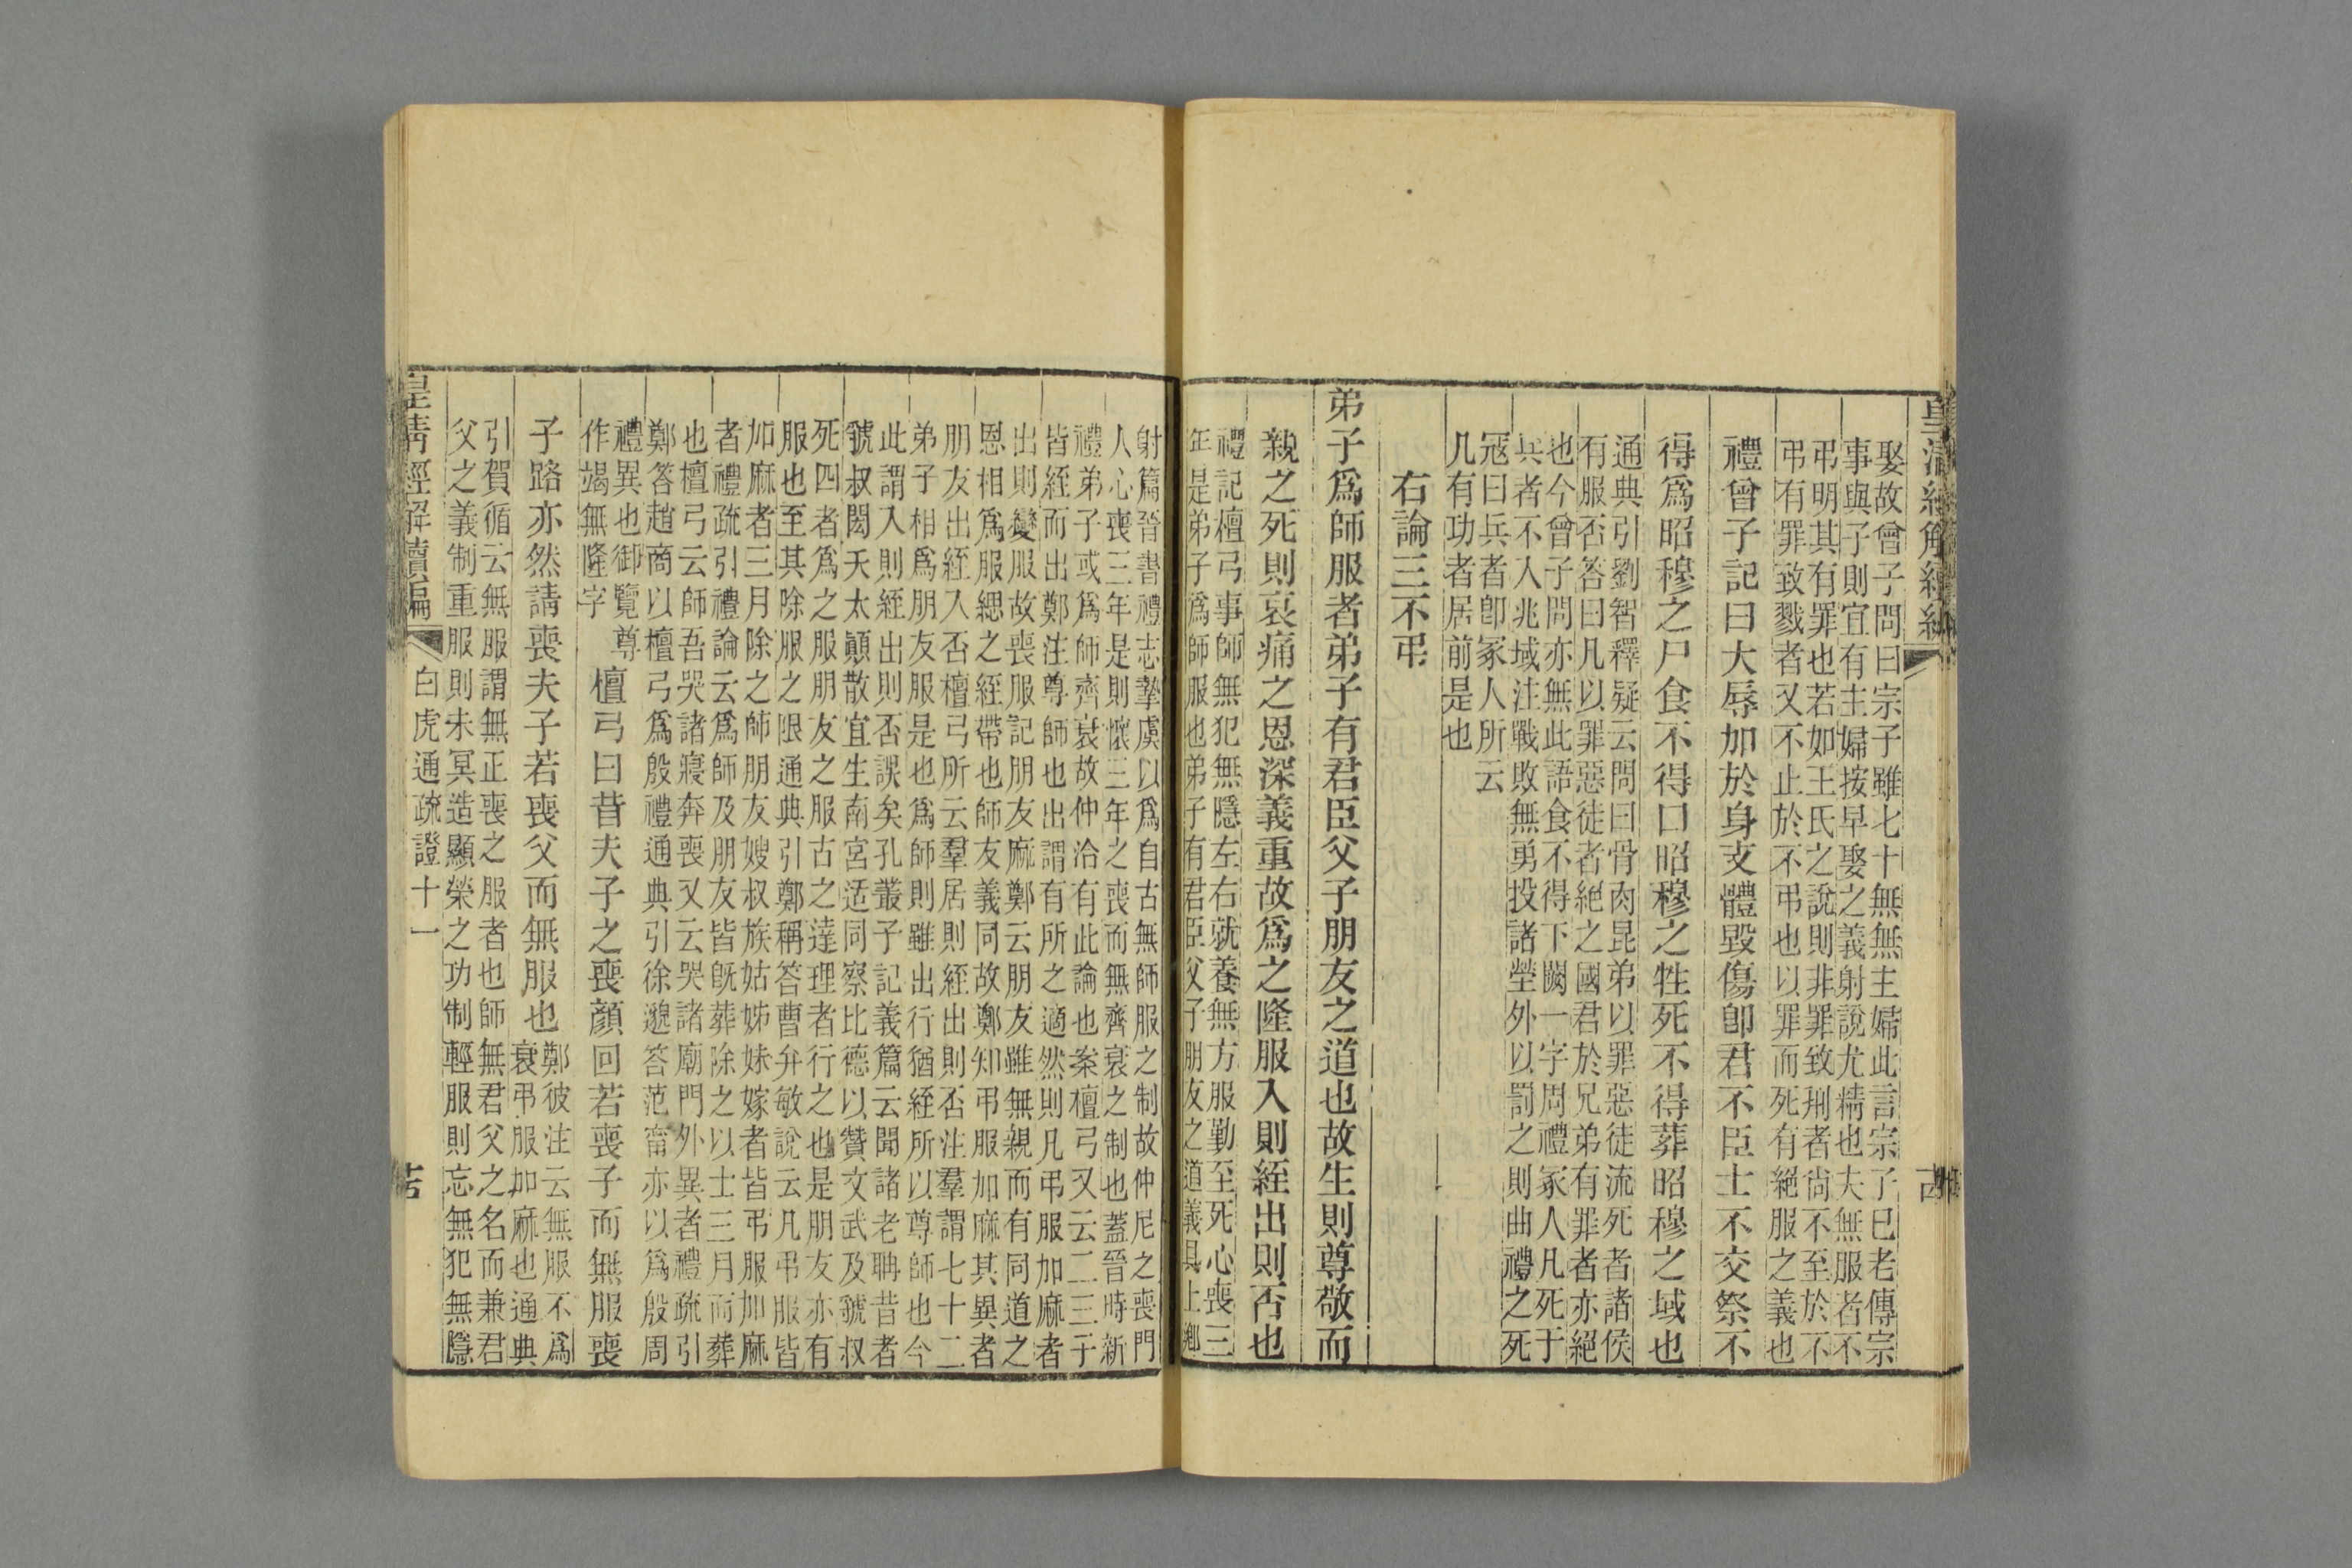 皇清經解續編
娶故曾子問曰宗子雖七十無無主婦此言宗子已老傳宗
事與子則宜有主婦按早娶之義射說尤精也夫無服者不
弔明其有罪也若如王氏之說則非罪致刑者尙不至於不
弔有罪致戮者又不止於不弔也以罪而死有絕服之義也
禮曾子記曰大辱加於身支體毀傷卽君不臣士不交祭不
得爲昭穆之尸食不得口昭穆之牲死不得葬昭穆之域也
通典引劉智釋疑云問曰骨肉昆弟以罪惡徒流死者諸侯
有服否答曰凡以罪惡徒者絕之國君於兄弟有罪者亦絕
也今曾子問亦無此語食不得下闕一字周禮冢人凡死于
兵者不入兆域注戰敗無勇投諸塋外以罰之則曲禮之死
寇曰兵者卽冢人所云
凡有功者居前是也
右論三不弔
弟子爲師服者弟子有君臣父子朋友之道也故生則尊敬而
親之死則哀痛之恩深義重故爲之隆服入則絰出則否也
禮記檀弓事師無犯無隱左右就養無方服勤至死心喪三
年是弟子爲師服也弟子有君臣父子朋友之道義具上鄕
射篇晉書禮志摯虞以爲自古無師服之制故仲尼之喪門
人心喪三年是則懷三年之喪而無齊衰之制也蓋晉時新
禮弟子或爲師齊衰故仲洽有此論也案檀弓又云二三子
皆絰而出鄭注尊師也出謂有所之適然則凡弔服加麻者
出則變服故喪服記朋友麻鄭云朋友雖無親而有同道之
恩相爲服緦之絰帶也師友義同故鄭知弔服加麻其異者
朋友出絰入否檀弓所云羣居則絰出則否注羣謂七十二
弟子相爲朋友服是也爲師則雖出行猶絰所以尊師也今
此謂入則絰出則否誤矣孔叢子記義篇云聞諸老聃昔者
虢叔閎夭太顚散宜生南宮适同察比德以贊文武及虢叔
死四者爲之服朋友之服古之達理者行之也是朋友亦有
服也至其除服之限通典引鄭稱答曹弁敏說云凡弔服皆
加麻者三月除之師朋友嫂叔族姑姊妹嫁者皆弔服加麻
者禮疏引禮論云爲師及朋友皆旣葬除之以士三月而葬
也檀弓云師吾哭諸寢奔喪又云哭諸廟門外異者禮疏引
鄭答趙商以檀弓爲殷禮通典引徐邈答范甯亦以爲殷周
禮異也御覽尊
作竭無隆字
檀弓曰昔夫子之喪顏回若喪子而無服喪
子路亦然請喪夫子若喪父而無服也
鄭彼注云無服不爲
衰弔服加麻也通典
引賀循云無服謂無正喪之服者也師無君父之名而兼君
父之義制重服則未冥造顯榮之功制輕服則忘無犯無隱
皇淸經解續編
白虎通疏證十一